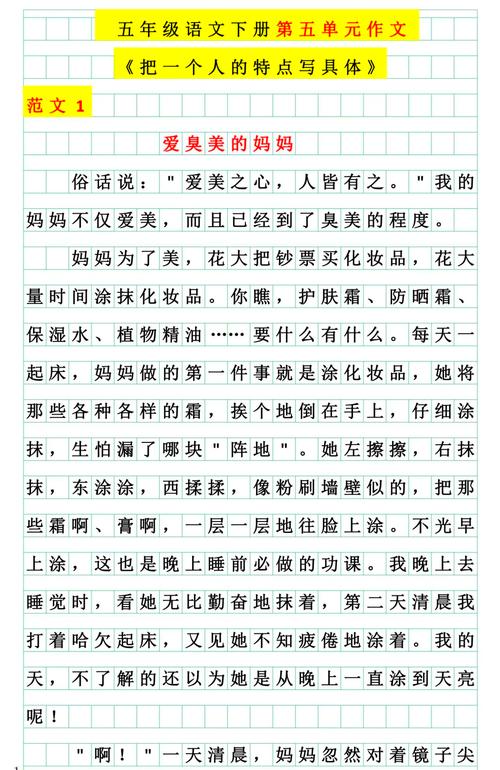 五年级语文下册第五单元作文
《把一个人的特点写具体》
范文1
爱臭美的妈妈
俗话说："爱美之心，人皆有之。"我的
妈妈不仅爱美，而且已经到了臭美的程度。
妈妈为了美，花大把钞票买化妆品，花大
量时间涂抹化妆品。你瞧，护肤霜、防晒霜、
保湿水、植物精油……要什么有什么。每天一
起床，妈妈做的第一件事就是涂化妆品，她将
那些各种各样的霜，挨个地倒在手上，仔细涂
抹，生怕漏了哪块"阵地"。她左擦擦，右抹
抹，东涂涂，西揉揉，像粉刷墙壁似的，把那
些霜啊、膏啊，一层一层地往脸上涂。不光早
上涂，这也是晚上睡前必做的功课。我晚上去
睡觉时，看她无比勤奋地抹着，第二天清晨我
打着哈欠起床，又见她不知疲倦地涂着。我的
天，不了解的还以为她是从晚上一直涂到天亮
呢！
"啊！"一天清晨，妈妈忽然对着镜子尖
1